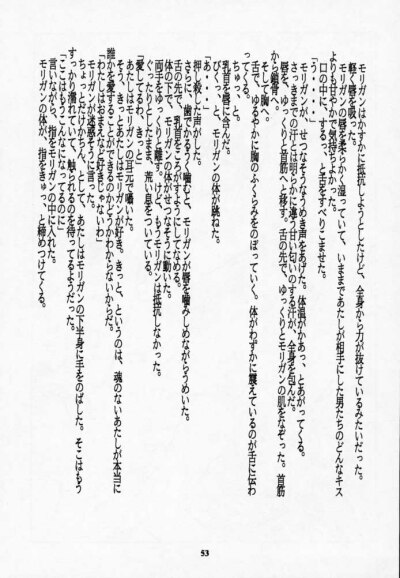 モリガンはかすかに抵抗しようとしたけど、全身から力が抜けているみたいだった。
軽く唇を吸った。
モリガンの唇を柔らかく湿っていて、いままであたしが相手にした男たちのどんなキス
よりも甘やかで気持ちよかった。
口の中に、する・・・と舌をすべりこませた。
「う・・・」
モリガンが、せつなそうなうめき声をあげた。体温がかあっ、とあがってくる。
さっきまでの汗とは明らかに違う甘い匂いのする汗が、全身を包んだ。
唇を、ゆっくりと首筋へと移す。舌の先で、ゆっくりとモリガンの肌をなぞった。首筋
から鎖骨へ。
そして胸へ。
舌で、ゆるやかに胸のふくらみをのぼっていく。体がわずかに震えているのが舌に伝わ
ってくる。
ちゅっ、と。
乳首を唇に含んだ。
びくっ、と、モリガンの体が跳ねた。
「あ・・・」
押し殺した声がした。
さらに、歯でかるうく噛むと、モリガンが唇を噛みしめながらうめいた。
舌の先で、乳首をころがすようにしてなめる。
体の下で、モリガンの体がせつなそうに動いた。
両手をゆっくりと離す。けど、もうモリガンは抵抗しなかった。
ぐったりとしたまま、荒い息をついている。
「愛してるわ・・・きっと」
あたしはモリガンの耳元で囁いた。
そう、きっとあたしはモリガンが好き。きっと、というのは、魂のないあたしが本当に
誰かを愛することができるのかどうかわからないからだ。
「わたしはあなたなど好きじゃないわ」
モリガンが迷惑そうに言った。
ちょっとだけかちん、として、あたしはモリガンの下半身に手をのばした。そこはもう
すっかり濡れていて、触れられるのを待ってるようだった。
「ここはもうこんなになってるのに」
言いながら、指をモリガンの中に入れた。
モリガンの体が、指をきゅっ、と締めつけてくる。
53